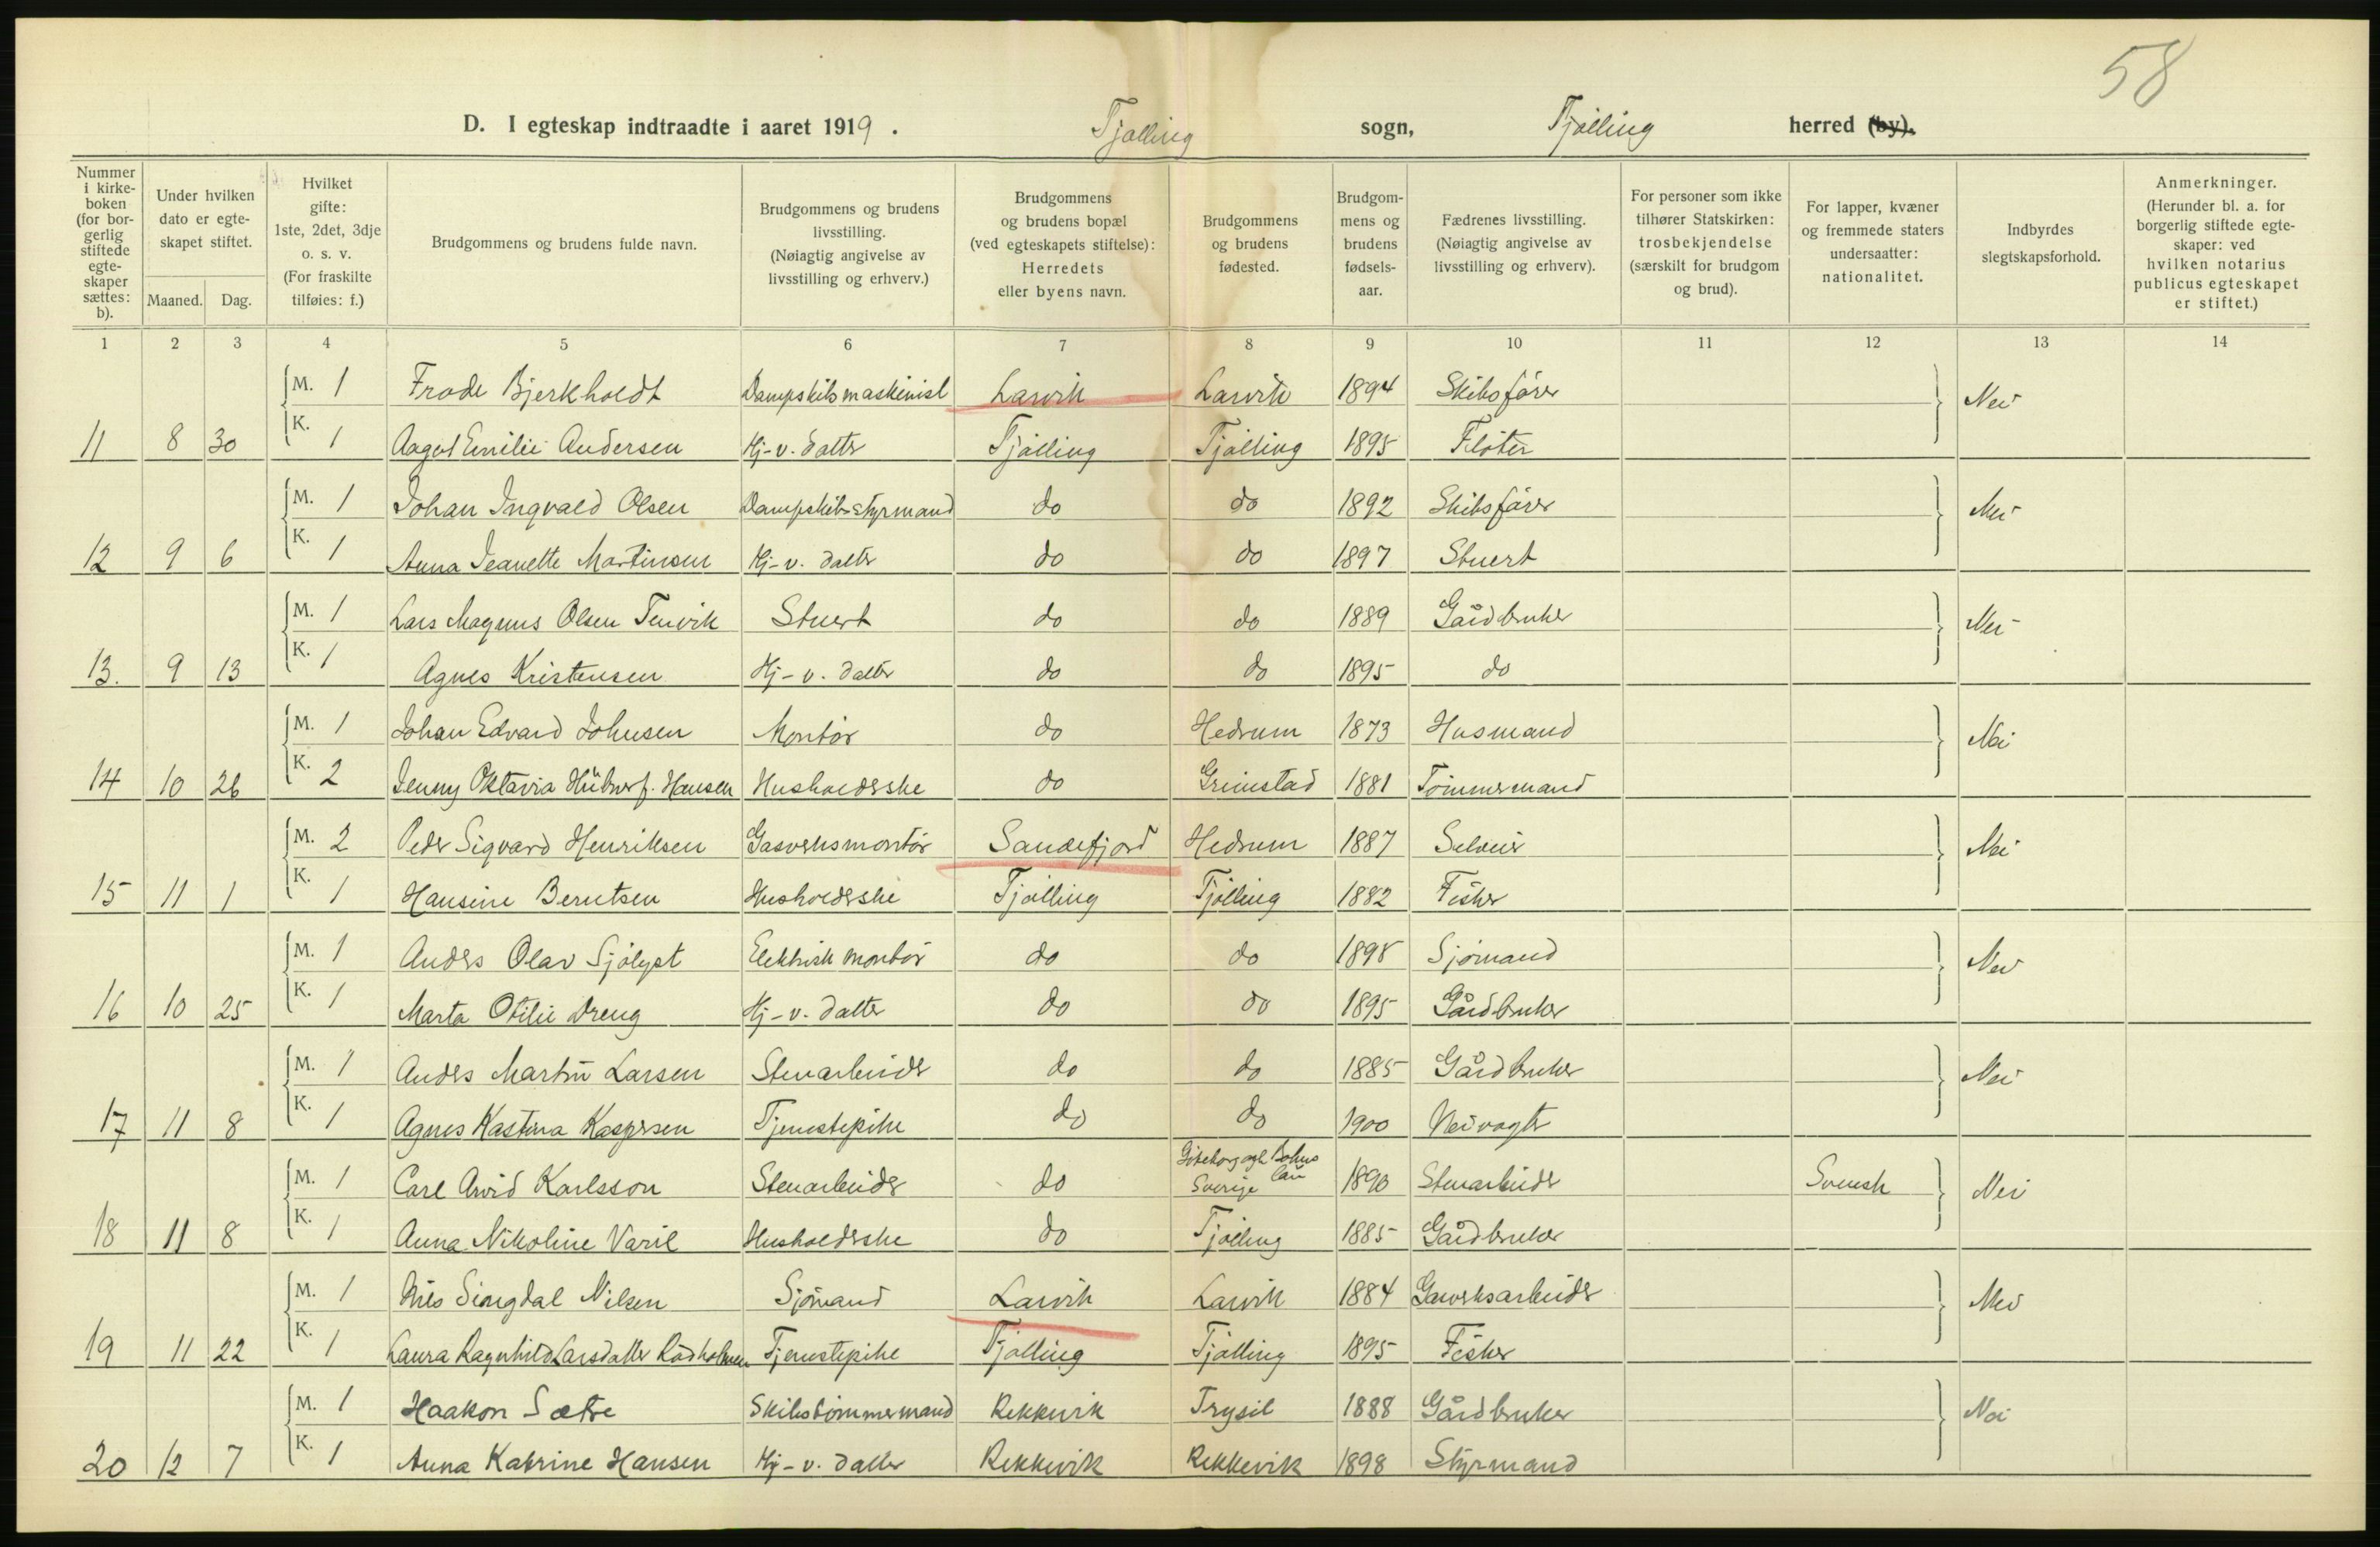 58
D. I egteskap indtraadte i aaret 1919. Tjølling sogn, Tjølling herred (by).
Nummer i kirkeboken (for borgerlig stiftede egteskaper sættes: b).
Under hvilken dato er egteskapet stiftet.
Maaned. Dag.
Hvilket gifte: 1ste, 2det, 3dje o. s. v. (For fraskilte tilføies: f.)
Brudgommens og brudens fulde navn.
Brudgommens og brudens livsstilling. (Nøiagtig angivelse av livsstilling og erhverv.)
Brudgommens og brudens bopæl (ved egteskapets stiftelse): Herredets eller byens navn.
Brudgommens og brudens fødested.
Brudgommens og brudens fødselsaar.
Fædrenes livsstilling. (Nøiagtig angivelse av livsstilling og erhverv).
For personer som ikke tilhører Statskirken: trosbekjendelse (særskilt for brudgom og brud).
For lapper, kvæner og fremmede staters undersaatter: nationalitet.
Indbyrdes slegtskapsforhold.
Anmerkninger. (Herunder bl. a. for borgerlig stiftede egteskaper: ved hvilken notarius publicus egteskapet er stiftet.)
1 2 3 4 5 6 7 8 9 10 11 12 13 14
M. 1 Frode Bjerkholdt Dampskibsmaskinist Larvik Larvik 1894 Skibsfører Nei
11 8 30 K. 1 Aagot Emilie Andersen Hj-v. datter Tjølling Tjølling 1895 Fløter
M. 1 Johan Ingvald Olsen Dampskibsstyrmand do do 1892 Skibsfører Nei
12 9 6 K. 1 Anna Jeanette Martinsen Hj-v. datter do do 1897 Stuert
M. 1 Lars Magnus Olsen Tenvik Stuert do do 1889 Gårdbruker Nei
13. 9 13 K. 1 Agnes Kristensen Hj-v. datter do do 1895 do
M. 1 Johan Edvard Johnsen Montør do Hedrum 1873 Husmand Nei
14 10 26 K. 2 Jenny Oktavia Hübner f. Hansen Husholderske do Grimstad 1881 Tømmermand
M. 2 Peder Sigvard Henriksen Gasverksmontør Sandefjord Hedrum 1887 Selveier Nei
15 11 1 K. 1 Hansine Berntsen Husholderske Tjølling Tjølling 1882 Fisker
M. 1 Anders Olav Sjølyst Elektrisk montør do do 1898 Sjømand Nei
16 10 25 K. 1 Marta Otilie Dreng Hj-v. datter do do 1895 Gårdbruker
M. 1 Anders Martin Larsen Stenarbeider do do 1885 Gårdbruker Nei
17 11 8 K. 1 Agnes Kastina Kaspersen Tjenestepike do do 1900 Veivogter
M. 1 Carl Arvid Karlsson Stenarbeider do Gøteborg och Bohus län Sverige 1890 Stenarbeider Svensk Nei
18 11 8 K. 1 Anna Nikoline Varil Husholderske do Tjølling 1885 Gårdbruker
M. 1 Nils Singdal Nilsen Sjømand Larvik Larvik 1884 Gasverksarbeider Nei
19 11 22 K. 1 Laura Ragnhild Larsdatter Rødholmen Tjenestepike Tjølling Tjølling 1895 Fisker
M. 1 Haakon Sætre Skibstømmermand Rekkevik Trysil 1888 Gårdbruker Nei
20 12 7 K. 1 Anna Katrine Hansen Hj-v. datter Rekkevik Rekkevik 1898 Styrmand